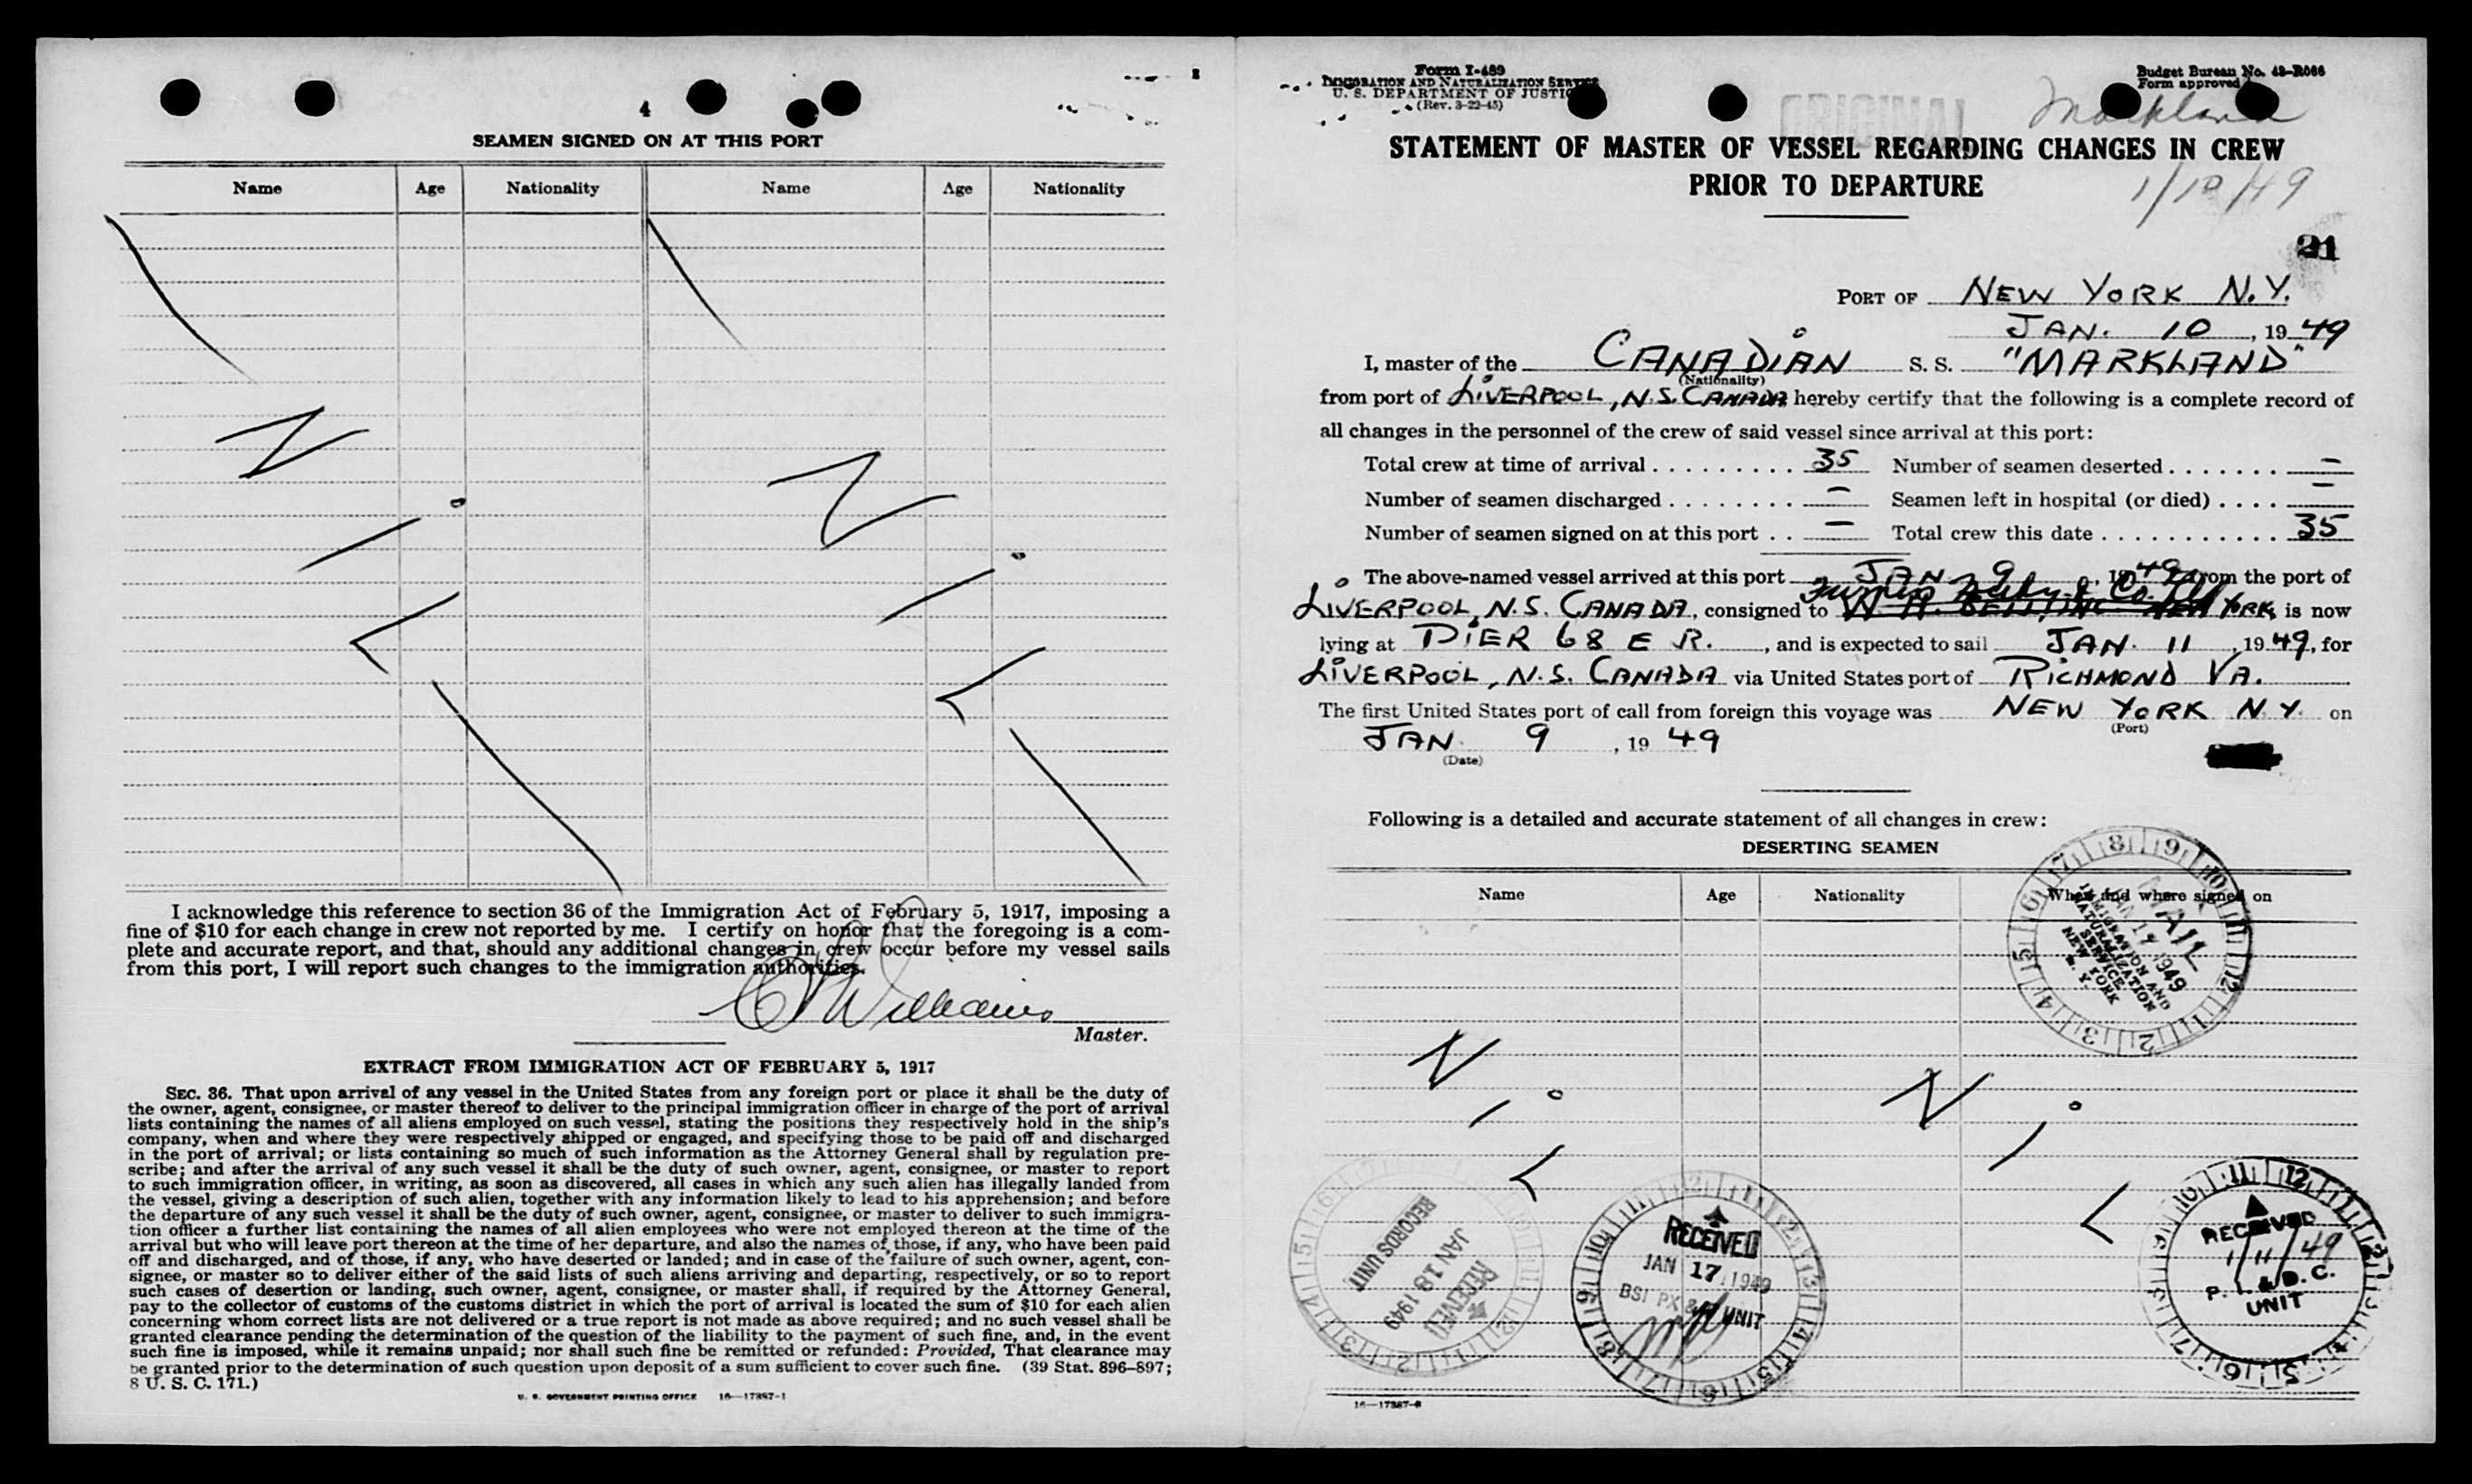 4
SEAMEN SIGNED ON AT THIS PORT
Name Age Nationality Name Age Nationality
N N
i i
L L
I acknowledge this reference to section 36 of the Immigration Act of February 5, 1917, imposing a
fine of $10 for each change in crew not reported by me. I certify on honor that the foregoing is a com-
plete and accurate report, and that, should any additional changes in crew occur before my vessel sails
from this port, I will report such changes to the immigration authorities.
Williams
Master.
EXTRACT FROM IMMIGRATION ACT OF FEBRUARY 5, 1917
SEC. 36. That upon arrival of any vessel in the United States from any foreign port or place it shall be the duty of
the owner, agent, consignee, or master thereof to deliver to the principal immigration officer in charge of the port of arrival
lists containing the names of all aliens employed on such vessel, stating the positions they respectively hold in the ship's
company, when and where they were respectively shipped or engaged, and specifying those to be paid off and discharged
in the port of arrival; or lists containing so much of such information as the Attorney General shall by regulation pre-
scribe; and after the arrival of any such vessel it shall be the duty of such owner, agent, consignee, or master to report
to such immigration officer, in writing, as soon as discovered, all cases in which any such alien has illegally landed from
the vessel, giving a description of such alien, together with any information likely to lead to his apprehension; and before
the departure of any such vessel it shall be the duty of such owner, agent, consignee, or master to deliver to such immigra-
tion officer a further list containing the names of all alien employees who were not employed thereon at the time of the
arrival but who will leave port thereon at the time of her departure, and also the names of those, if any, who have been paid
off and discharged, and of those, if any, who have deserted or landed; and in case of the failure of such owner, agent, con-
signee, or master so to deliver either of the said lists of such aliens arriving and departing, respectively, or so to report
such cases of desertion or landing, such owner, agent, consignee, or master shall, if required by the Attorney General,
pay to the collector of customs of the customs district in which the port of arrival is located the sum of $10 for each alien
concerning whom correct lists are not delivered or a true report is not made as above required; and no such vessel shall be
granted clearance pending the determination of the question of the liability to the payment of such fine, and, in the event
such fine is imposed, while it remains unpaid; nor shall such fine be remitted or refunded: Provided, That clearance may
be granted prior to the determination of such question upon deposit of a sum sufficient to cover such fine. (39 Stat. 896–897;
8 U. S. C. 171.)
U. S. GOVERNMENT PRINTING OFFICE 16—17387-1
Form I-489
IMMIGRATION AND NATURALIZATION SERVICE
U. S. DEPARTMENT OF JUSTICE
(Rev. 3-22-45)
Budget Bureau No. 43–R066
Form approved
ORIGINAL
Markland
STATEMENT OF MASTER OF VESSEL REGARDING CHANGES IN CREW
PRIOR TO DEPARTURE
1/10/49
21
PORT OF NEW YORK N.Y.
JAN. 10, 1949
I, master of the CANADIAN S. S. "MARKLAND"
(Nationality)
from port of LIVERPOOL, N.S. CANADA hereby certify that the following is a complete record of
all changes in the personnel of the crew of said vessel since arrival at this port:
Total crew at time of arrival . . . . . . . . . . 35 Number of seamen deserted . . . . . . . –
Number of seamen discharged . . . . . . . . – Seamen left in hospital (or died) . . . . –
Number of seamen signed on at this port . . – Total crew this date . . . . . . . . . . . . 35
The above-named vessel arrived at this port JAN. 9, 1949, from the port of
LIVERPOOL, N.S. CANADA, consigned to & Co. YORK, is now
lying at PIER 68 E R., and is expected to sail JAN. 11, 1949, for
LIVERPOOL, N.S. CANADA via United States port of RICHMOND VA.
The first United States port of call from foreign this voyage was NEW YORK N.Y. on
(Port)
JAN. 9, 1949
(Date)
Following is a detailed and accurate statement of all changes in crew:
DESERTING SEAMEN
Name Age Nationality When and where signed on
MAIL
JAN 17 1949
IMMIGRATION AND
NATURALIZATION
SERVICE
NEW YORK
N. Y.
N N
i i
L L
RECORDS UNIT
JAN 18 1949
RECEIVED
RECEIVED
JAN 17 1949
BSI PX & UNIT
RECEIVED
1/11/49
P. I. & D. C.
UNIT